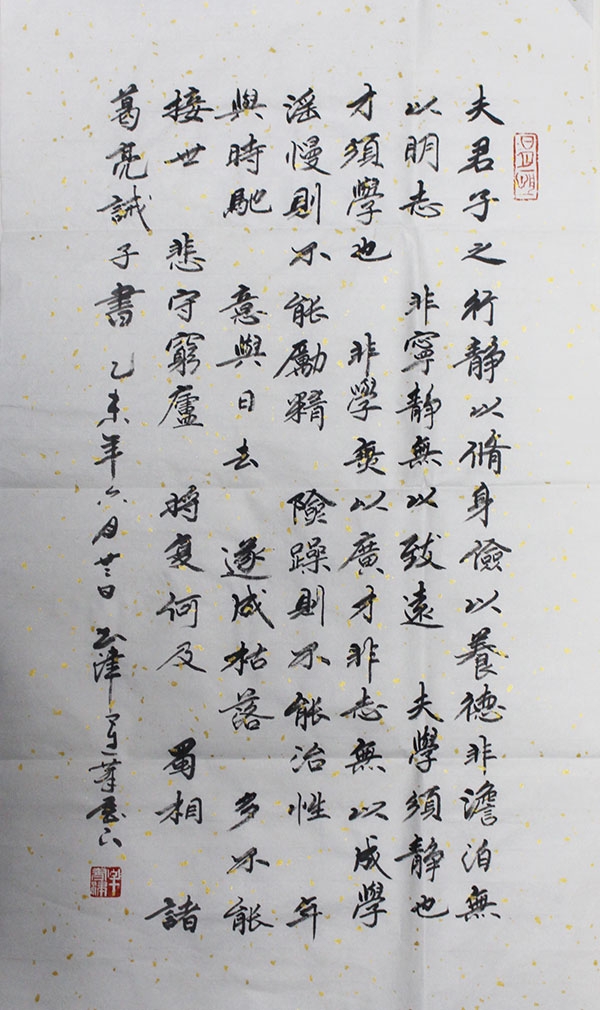 夫君子之行靜以脩身儉以養德非澹泊無
以明志 非寧靜無以致遠 夫學須靜也
才須學也 非學無以廣才非志無以成學
滛慢則不能勵精 險躁則不能治性 年
與時馳 意與日去 遂成枯落 多不能
接世 悲守窮廬 將復何及 蜀相 諸
葛亮誡子書 乙未年六月